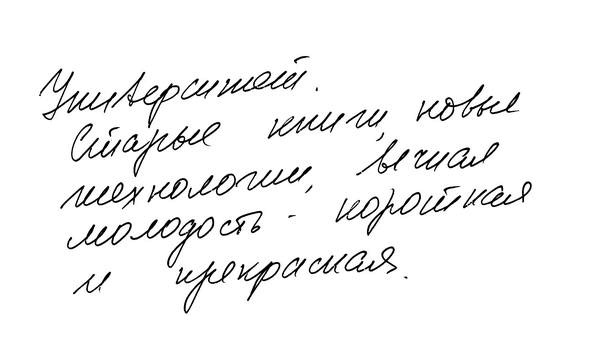 Университет.
Старые книги, новые
технологии, вечная
молодость - короткая
и прекрасная.